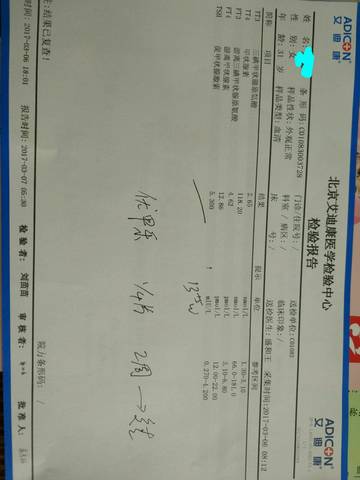 ADICON 艾迪康
北京艾迪康医学检验中心
检验报告
ADICON 艾迪康
姓 名: 条 形 码: 门诊/住院号: / 送检单位: C01083
性 别: 女 样品性状: 外观正常 科室/病区: / 临床印象: /
年 龄: 31 岁 样品类型: 血清 床 号: / 送检医生: 盛和王 采集时间: 2017-03-06 08:12
简称 项目 结果 提示 单位 参考区间
TT3 三碘甲状腺原氨酸 2.65 nmol/L 1.30-3.10
TT4 甲状腺素 118.20 nmol/L 66.0-181.0
FT3 游离三碘甲状腺原氨酸 4.62 pmol/L 3.10-6.80
FT4 游离甲状腺素 12.86 pmol/L 12.00-22.00
TSH 促甲状腺激素 5.200 ↑ mIU/L 0.270-4.200
13+5w
优甲乐 1/4片 2周
注:结果已复查!
时间: 2017-03-06 18:01 报告时间: 2017-03-07 05:30 检 验 者: 刘苗苗 审 核 者: 批 准 人:
院方条形码: /